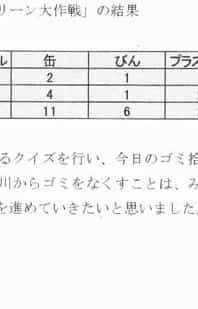 リーン大作戦」の結果
ル 缶 びん プラス
2 1
4 1
11 6
るクイズを行い、今日のゴミ拾
川からゴミをなくすことは、み
を進めていきたいと思いました